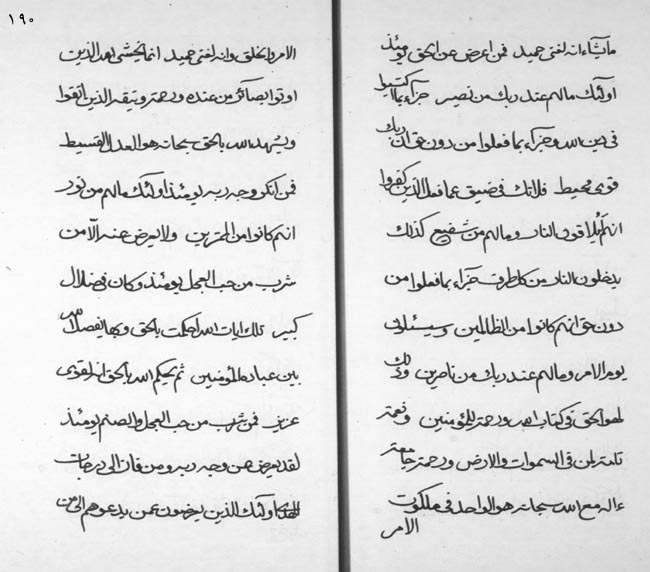 ١٩٠
ما يشاء انه لغنى حميد فمن اعرض عن الحق يومئذ
اولئك مالهم عند ربك من نصير جزاء بما اكتسبوا
فى دين الله وجزاء بما فعلوا من دون حق ان ربك
قوى محيط فلاتك فى ضيق عما فعل الذين كفروا
انهم يلاقون النار ومالهم من شفيع كذلك
يدخلون النار من كل طرف جزاء بما فعلوا من
دون حق انهم كانوا من الظالمين وسيسئلون
يوم الامر ومالهم عند ربك من ناصرين وذلك
لهو الحق فى كتاب الله ورحمة للمؤمنين ونعمة
تامة لمن فى السموات والارض ورحمة جامعة
ءاله مع الله سبحانه هو الواحد فى ملكوت
الامر
الامر والخلق وانه لغنى حميد انما يخشى الله الذين
اوتوا بصائر من عنده ورحمة ويتبعه الذين اتقوا
ويشهد الله بالحق سبحانه هو العدل القسيط
فمن انكر وجه ربه يومئذ اولئك مالهم من نور
انهم كانوا من الممترين ولا يعرض عنه الا من
شرب من حب العجل يومئذ وكان فى ضلال
كبير تلك ايات الله احكمت بالحق وبها يفصل الله
بين عباده المؤمنين ثم يحكم الله بالحق انه لقوى
عزيز فمن شرب من حب العجل والصنم يومئذ
لقد يعرض عن وجه ربه ومن فاز الى درجات
الهدى اولئك الذين يعرضون عمن يدعوهم الى من